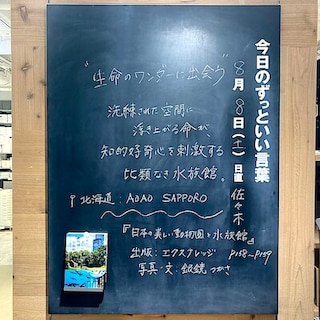 今日のずっといい言葉
8月8日(土)日直 佐々木
"生命のワンダーに出会う"
洗練された空間に
浮き上がる命が、
知的好奇心を刺激する
比類なき水族館。
北海道:AOAO SAPPORO
『日本の美しい動物園と水族館』
出版:エクスナレッジ P158-P159
写真・文:銀鏡つかさ